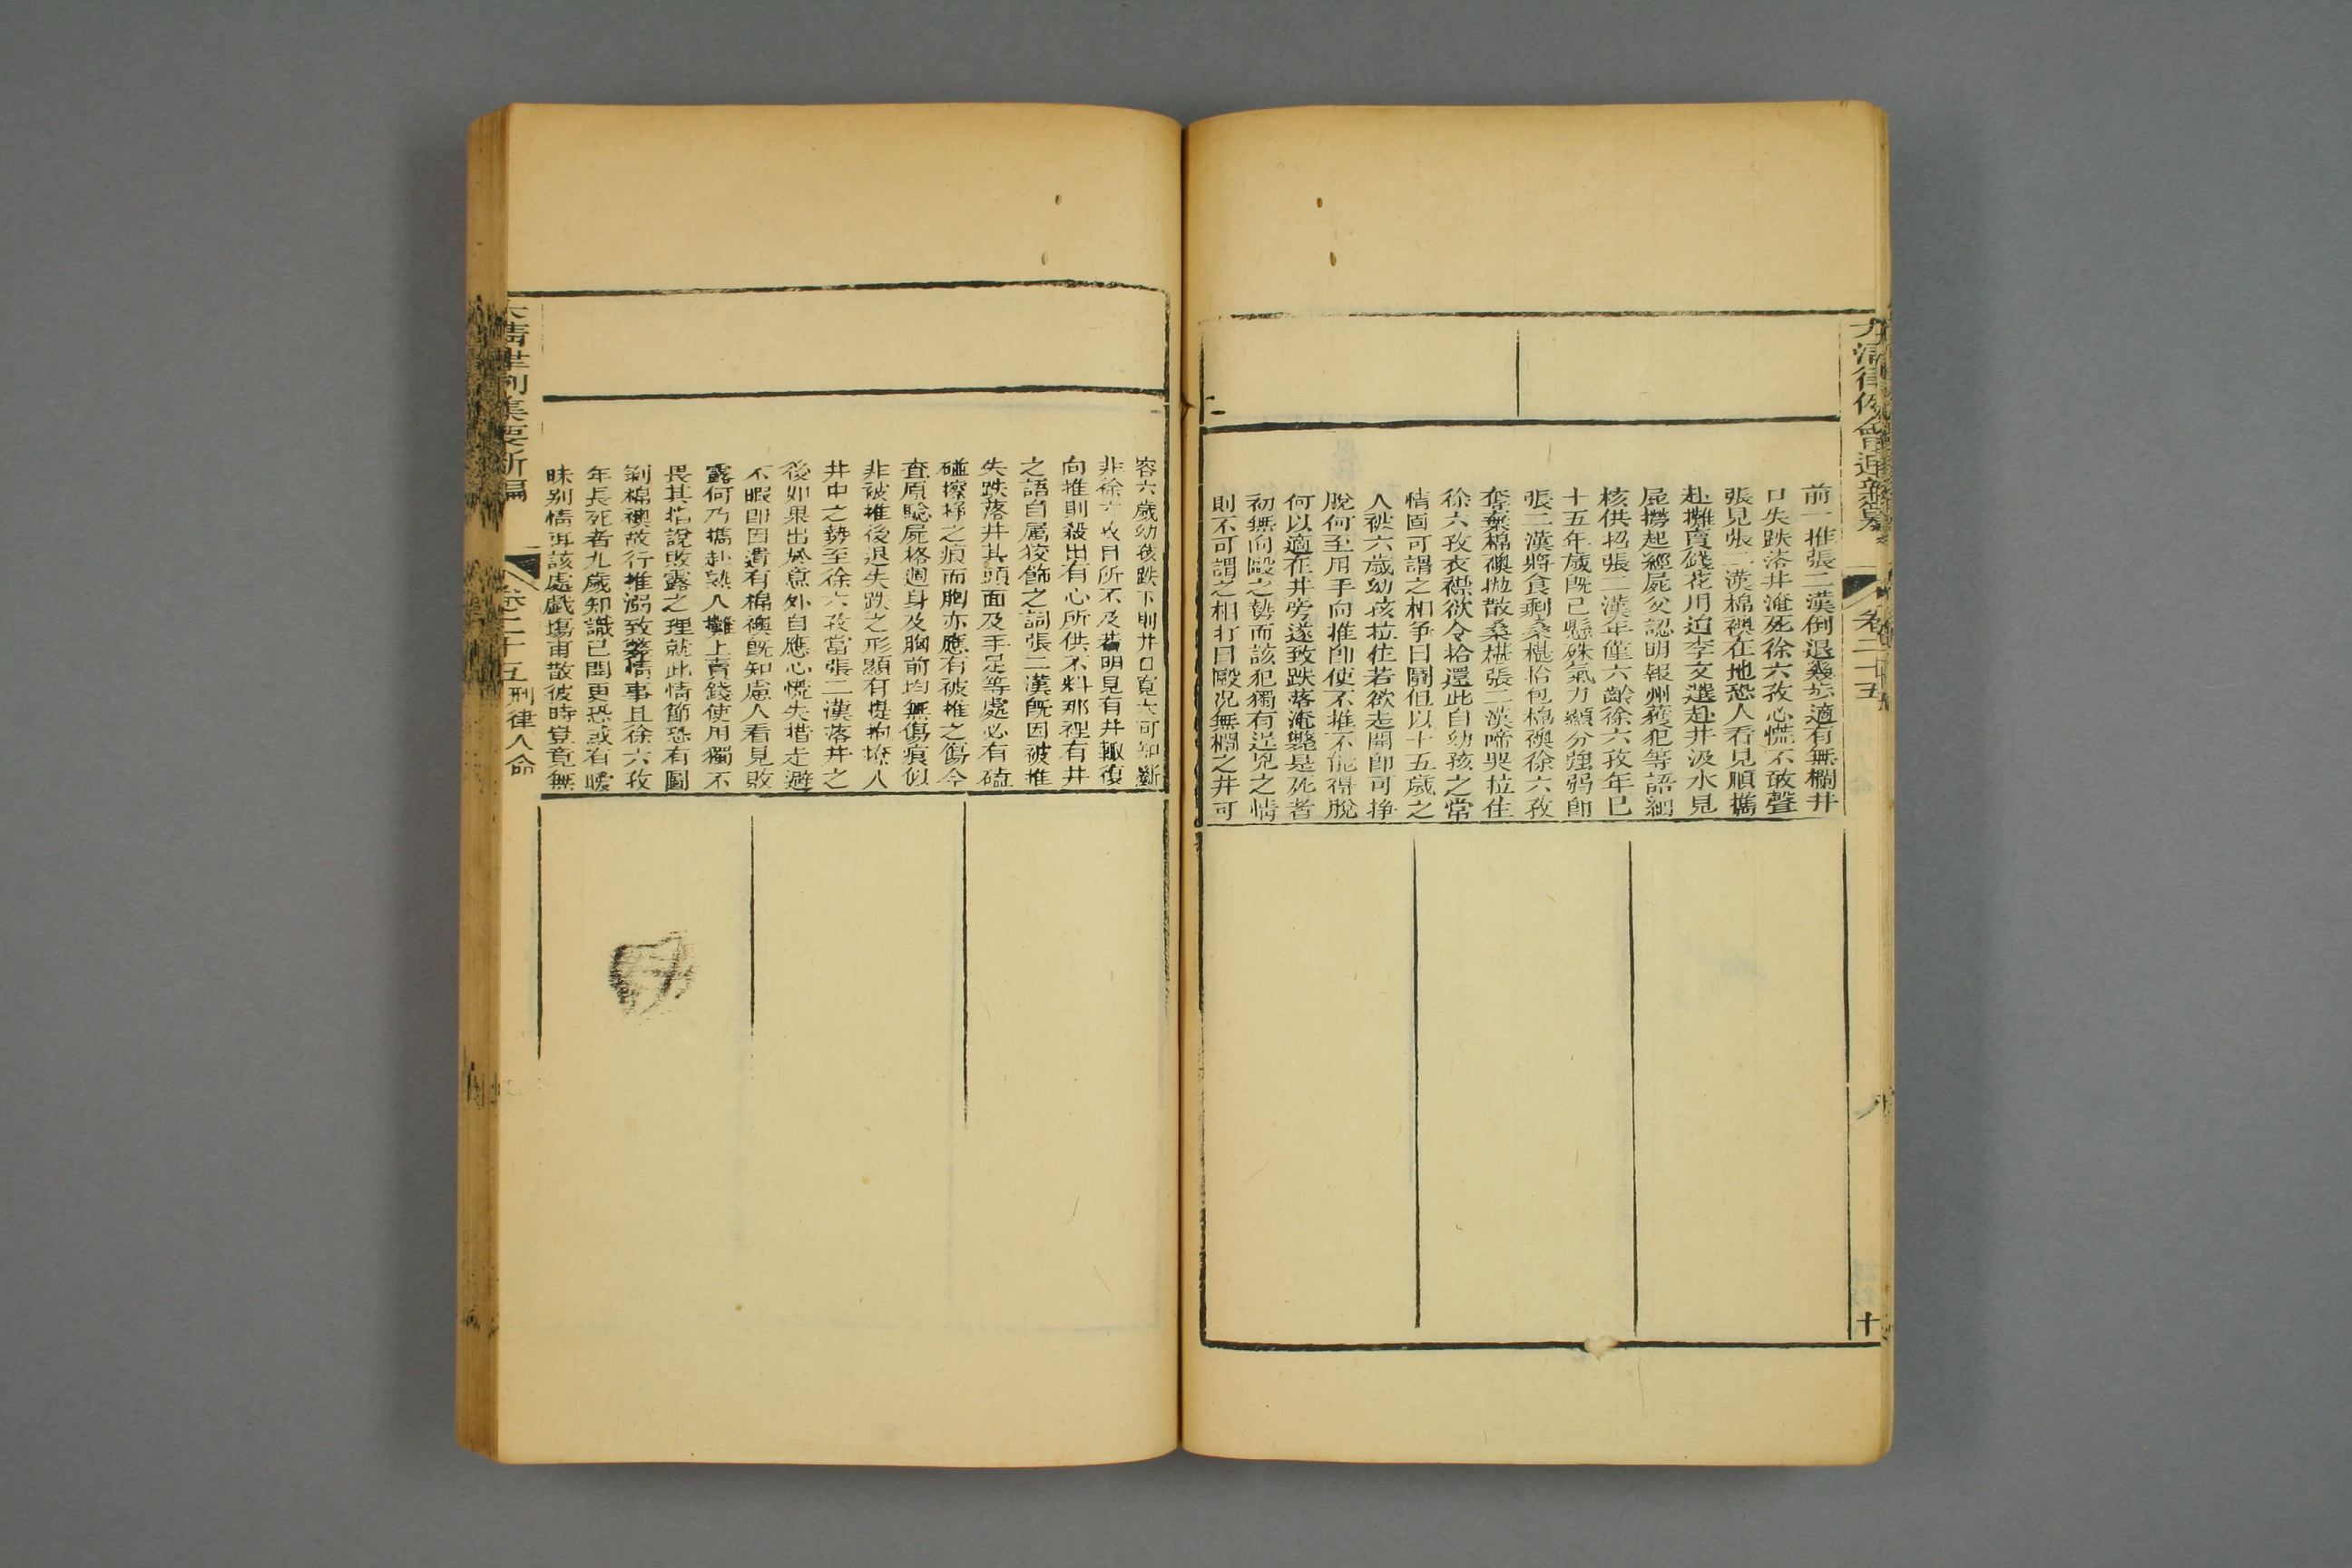 大清律例會通新纂
卷二十五
十
前一推張二漢倒退幾步適有無欄井
口失跌落井淹死徐六孜心慌不敢聲
張見張二漢棉襖在地恐人看見順攜
赴攤賣錢花用迨李文選赴井汲水見
屍撈起經屍父認明報州獲犯等語細
核供招張二漢年僅六齡徐六孜年已
十五年歲既已懸殊氣力顯分強弱即
張二漢將食剩桑椹恰包棉襖徐六孜
奪棄棉襖拋散桑椹張二漢啼哭拉住
徐六孜衣襟欲令拾還此自幼孩之常
情固可謂之相爭日鬭但以十五歲之
人被六歲幼孩拉住若欲走開即可掙
脫何至用手向推即使不推不能得脫
何以適在井旁遂致跌落淹斃是死者
初無向毆之勢而該犯獨有逞兇之情
則不可謂之相打日毆况無欄之井可
容六歲幼孩跌下則井口寬大可知斷
非徐六孜目所不及若明見有井輙復
向推則殺出有心所供不料那裡有井
之語自属狡飾之詞張二漢既因被推
失跌落井其頭面及手足等處必有磕
碰擦掽之痕而胸亦應有被推之傷今
查原騐屍格週身及胸前均無傷痕似
非被推後退失跌之形顯有提抱撩入
井中之勢至徐六孜當張二漢落井之
後如果出於意外自應心慌失措走避
不暇即因遺有棉襖既知慮人看見敗
露何乃攜赴熟人攤上賣錢使用獨不
畏其指說敗露之理就此情節恐有圖
剝棉襖故行推溺致斃情事且徐六孜
年長死者九歲知識已開更恐或有曖
昧别情況該處戲塲甫散彼時豈竟無
大清律例集要新編
卷二十五 刑律人命